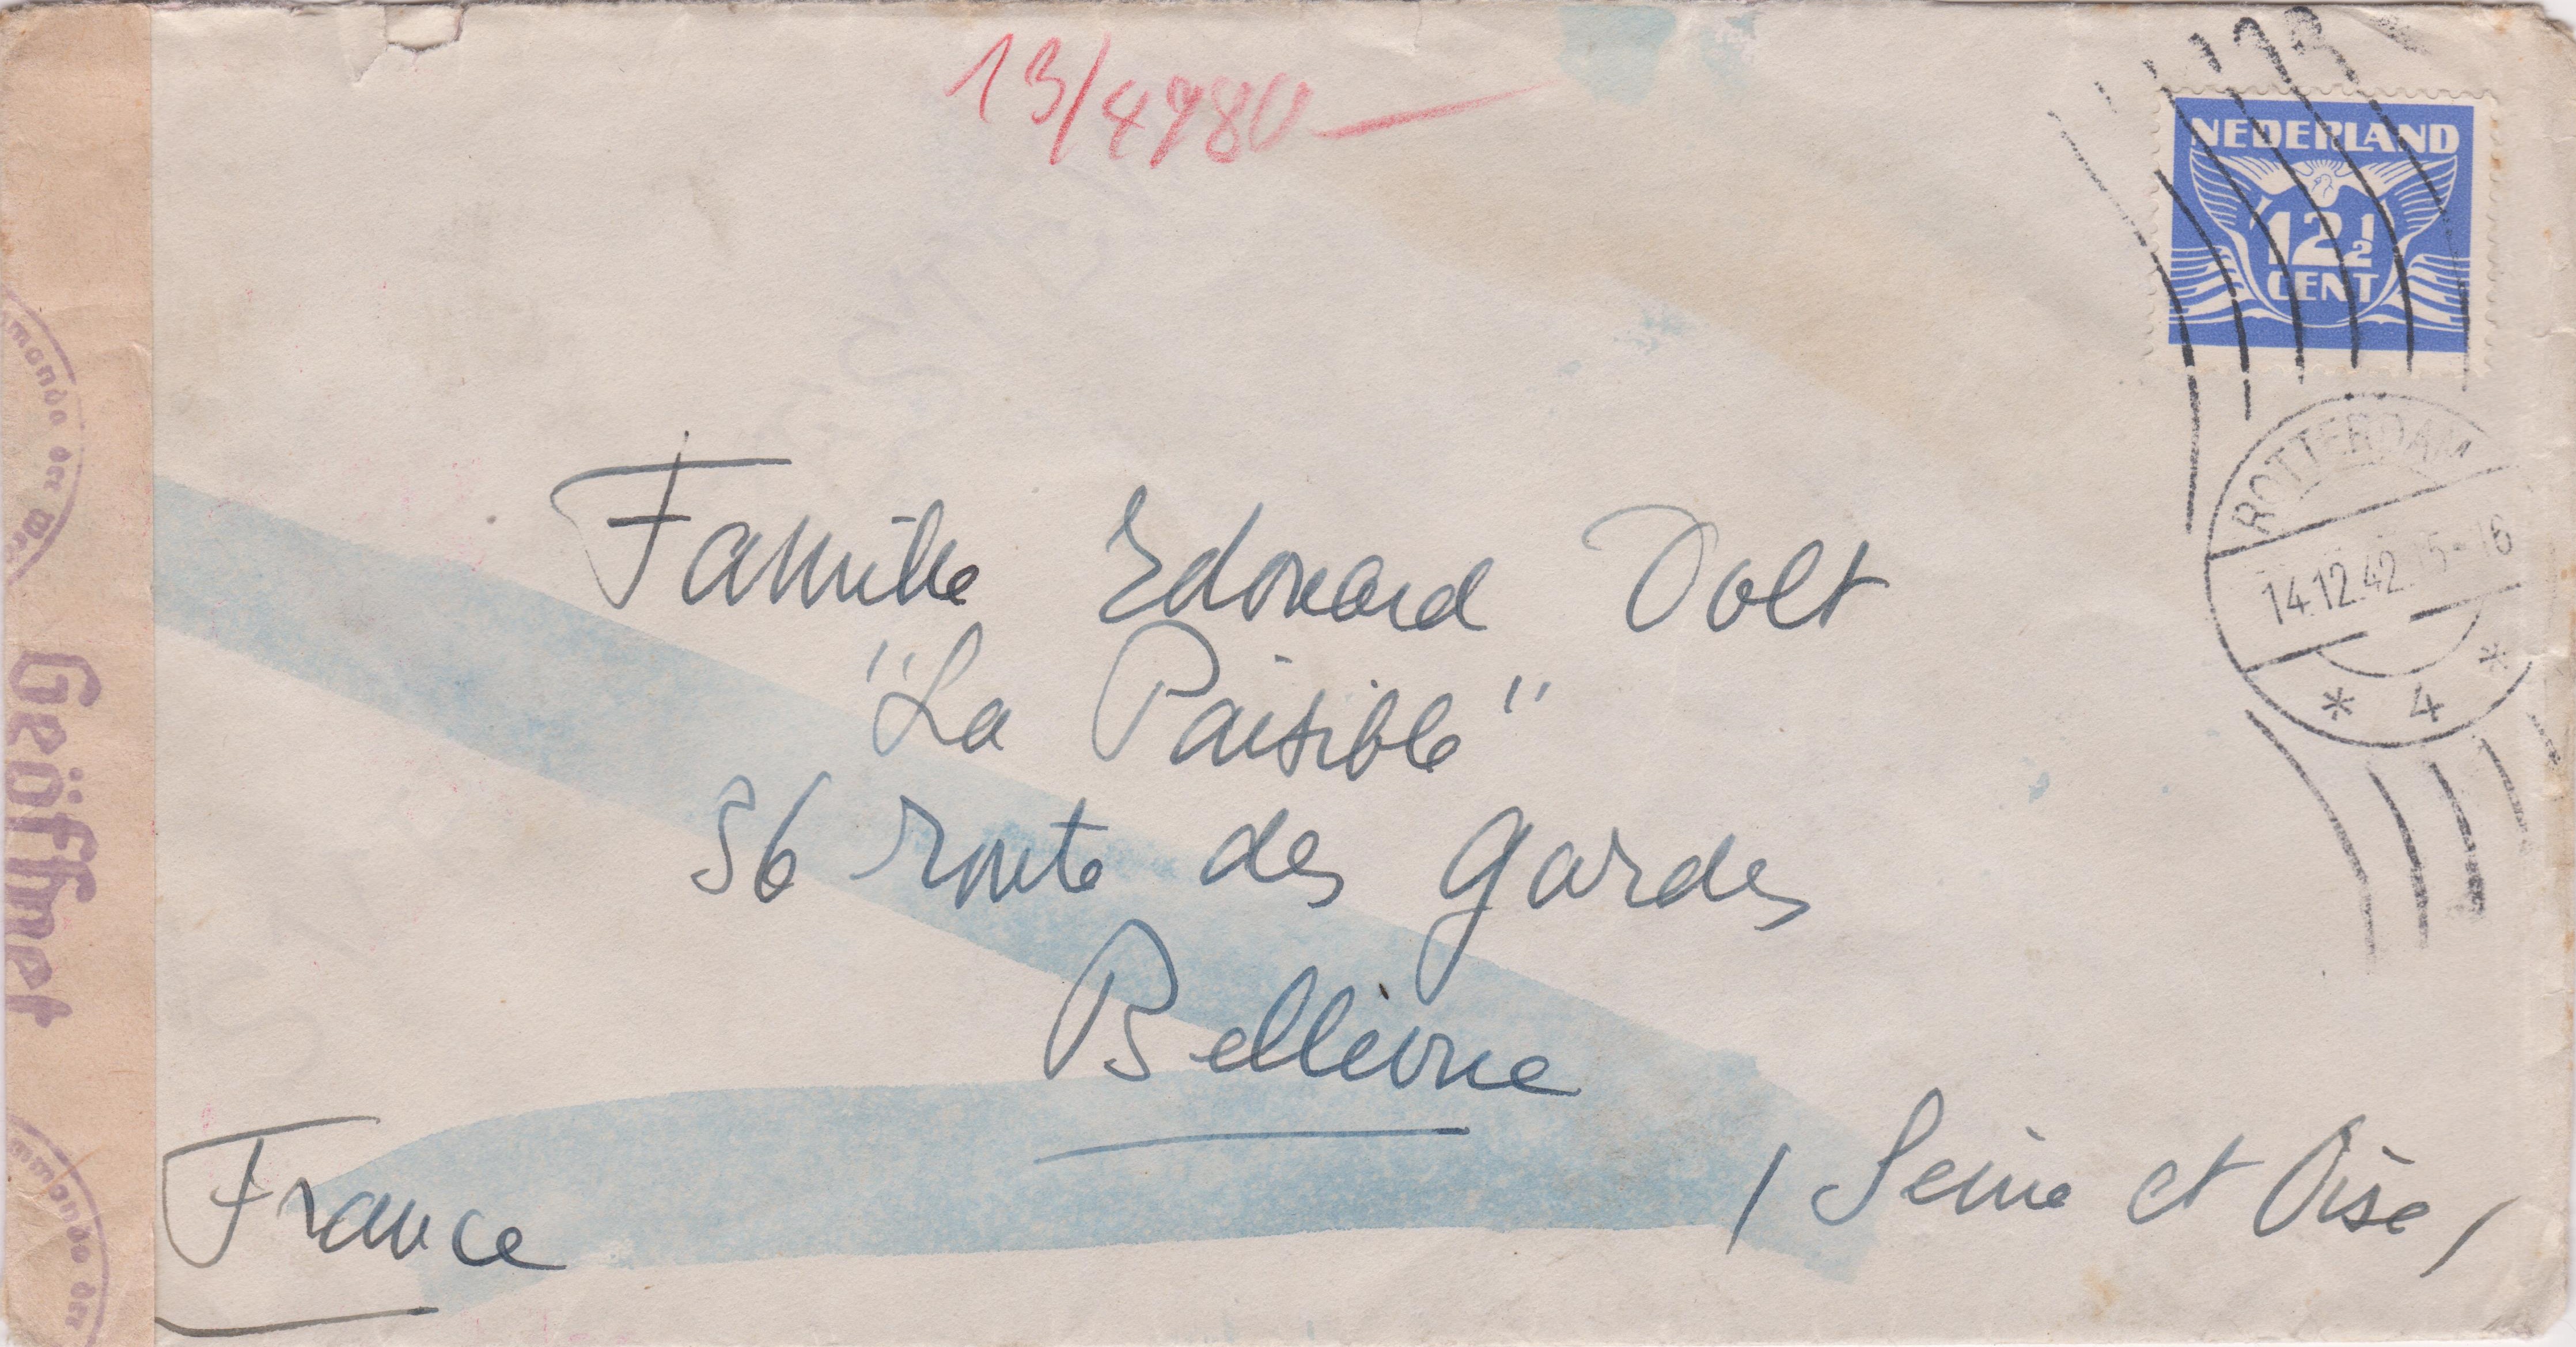 13/4980
NEDERLAND
12½
CENT
ROTTERDAM
14.12.42.15-16
* 4 *
Famille Edouard Dolt
"La Paisible"
36 route des gardes
Bellevue
France
/ Seine et Oise /
Geöffnet
mmando der
mmando der